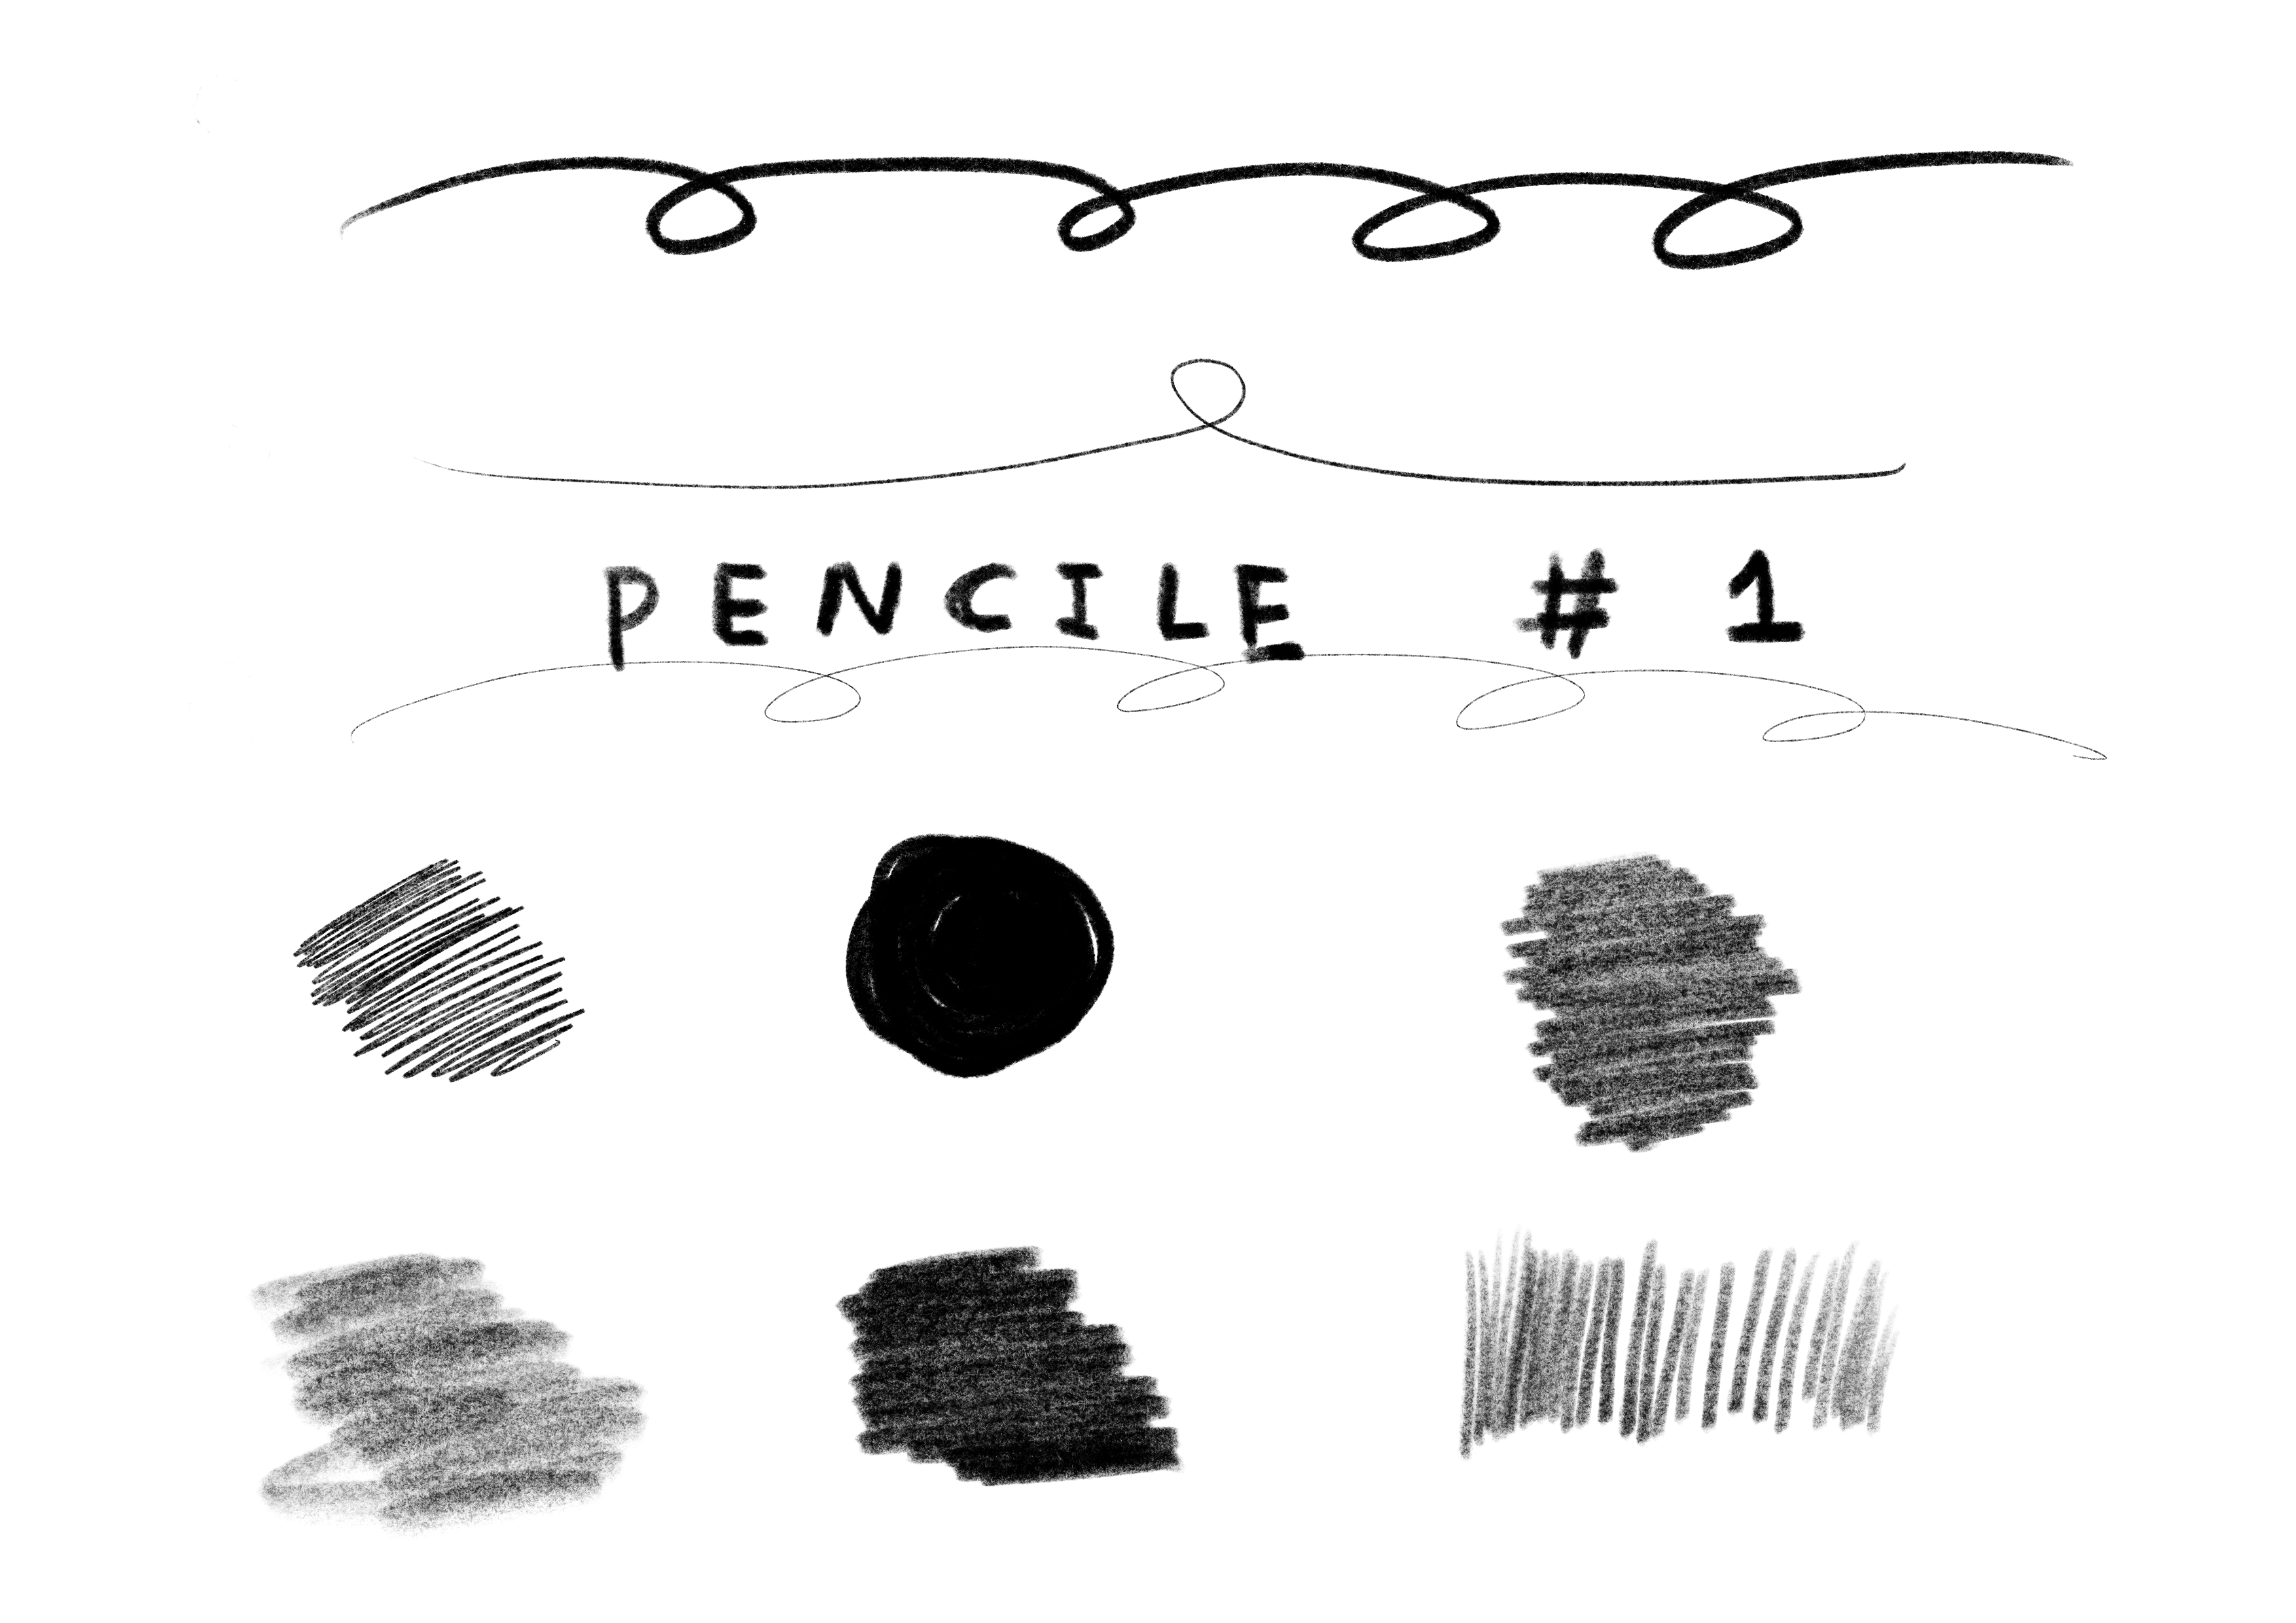 PENCILE # 1